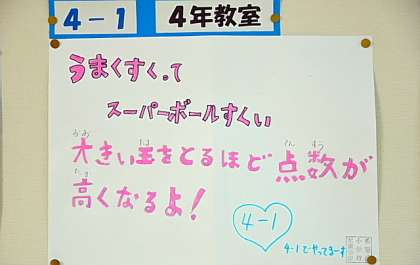 4-1 4年教室
うまくすくって
スーパーボールすくい
大きい玉をとるほど点数が
高くなるよ!
4-1
4-1でやってるーす